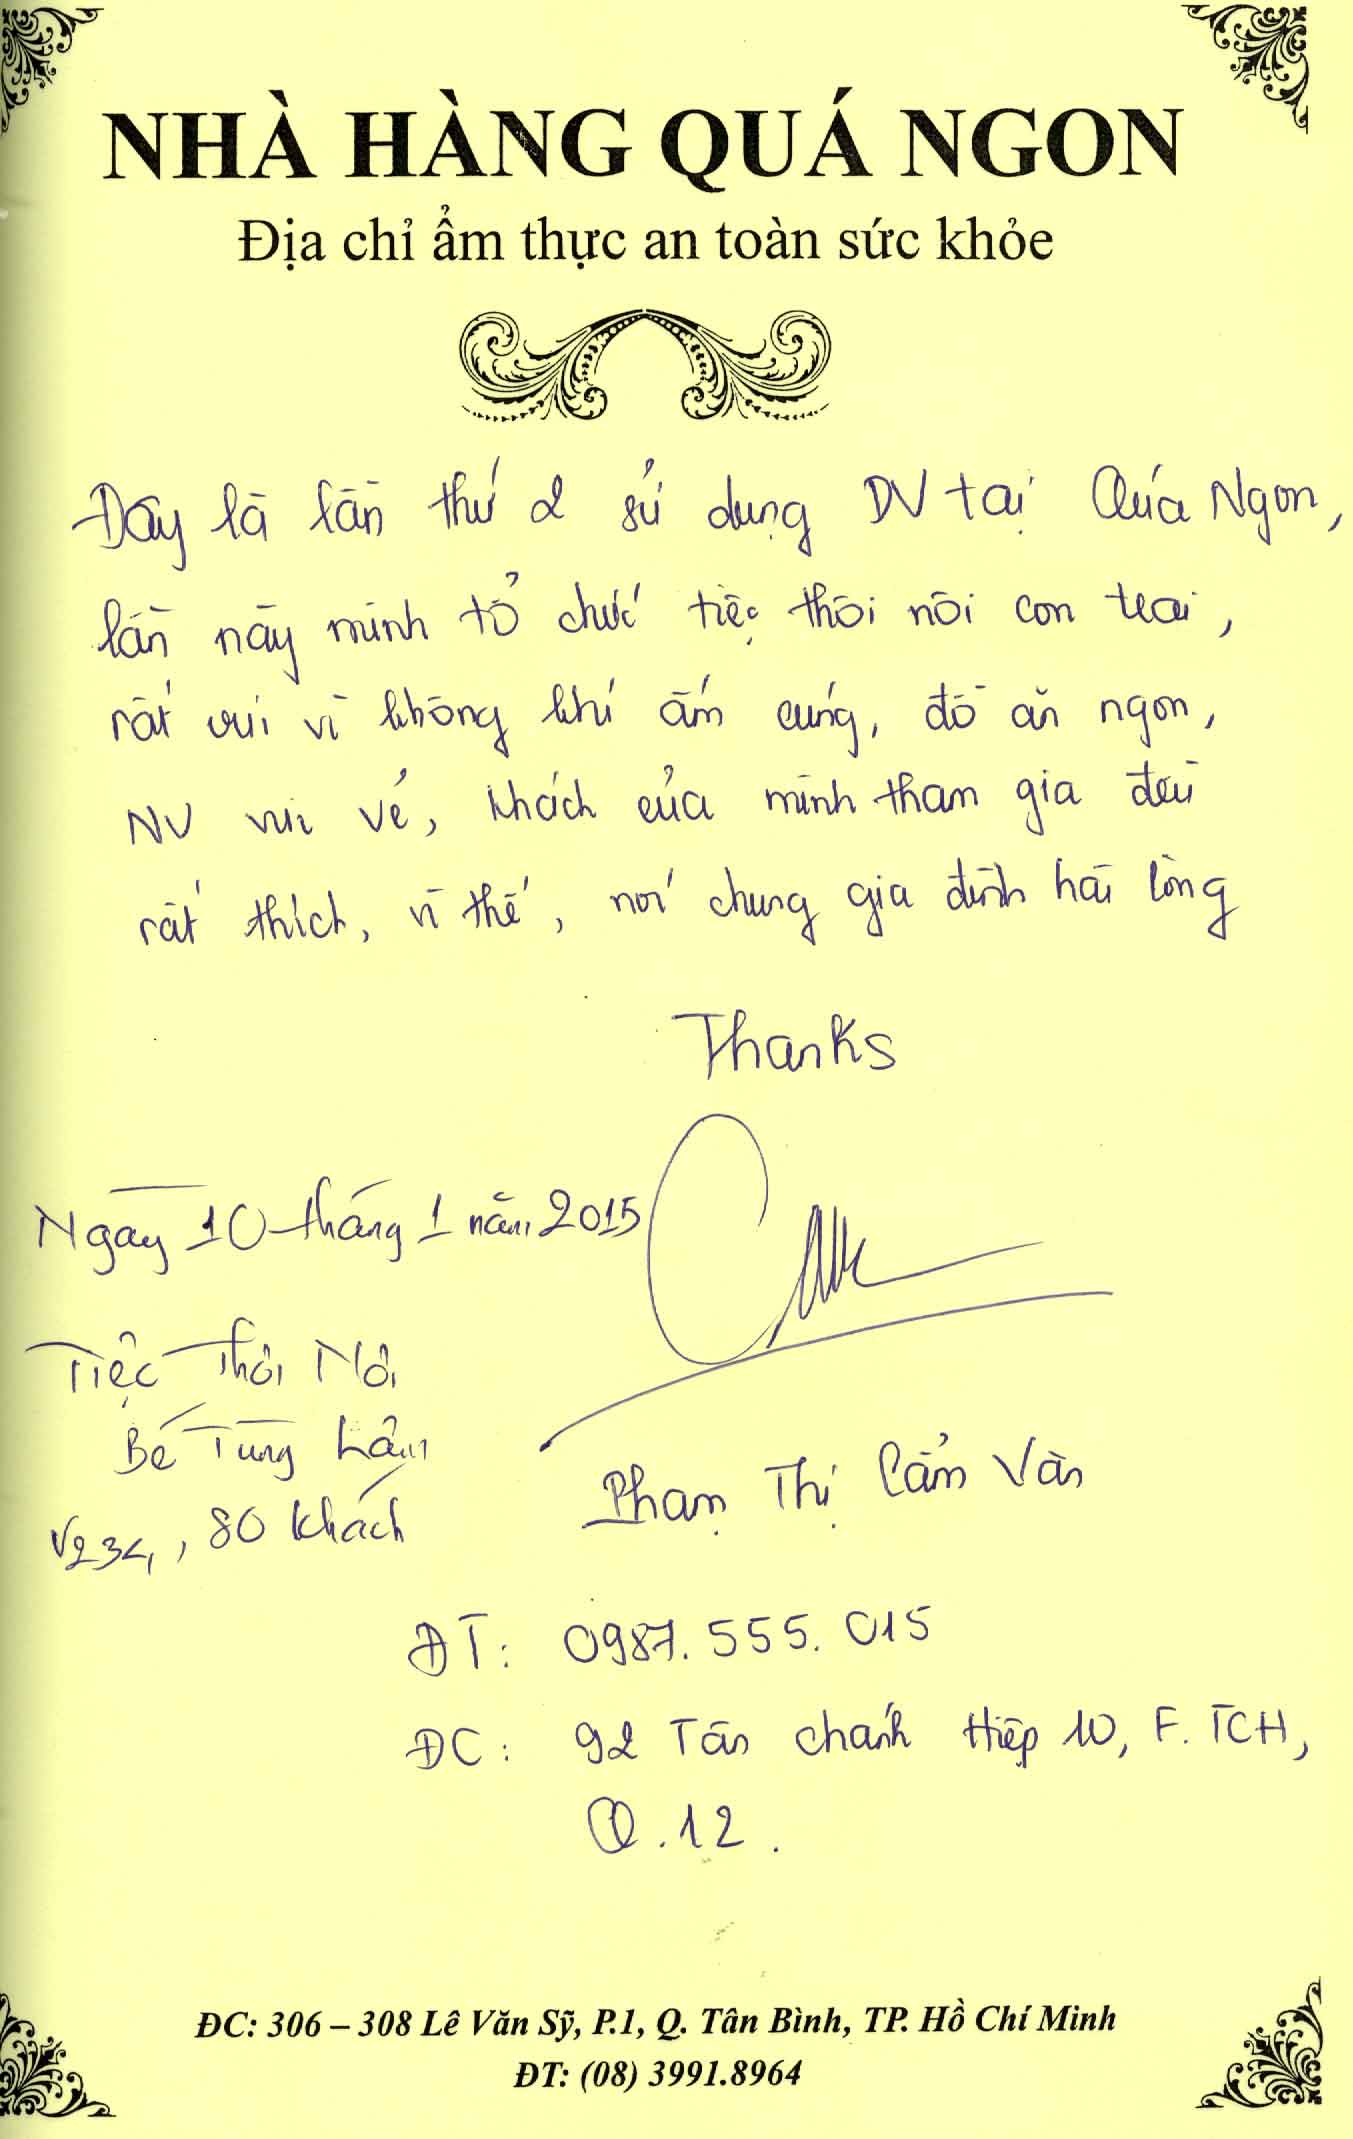 NHÀ HÀNG QUÁ NGON
Địa chỉ ẩm thực an toàn sức khỏe
Đây là lần thứ 2 sử dụng DV tại Quá Ngon,
lần này mình tổ chức tiệc thôi nôi con trai,
rất vui vì không khí ấm cúng, đồ ăn ngon,
NV vui vẻ, khách của mình tham gia đều
rất thích, vì thế, nói chung gia đình hài lòng
Thanks
Ngày 10 tháng 1 năm 2015
Tiệc Thôi Nôi
Bé Tùng Lâm
V234, 80 khách
Phạm Thị Cẩm Vân
ĐT: 0987.555.015
ĐC: 92 Tân chánh Hiệp 10, F. TCH,
Q.12.
ĐC: 306 – 308 Lê Văn Sỹ, P.1, Q. Tân Bình, TP. Hồ Chí Minh
ĐT: (08) 3991.8964